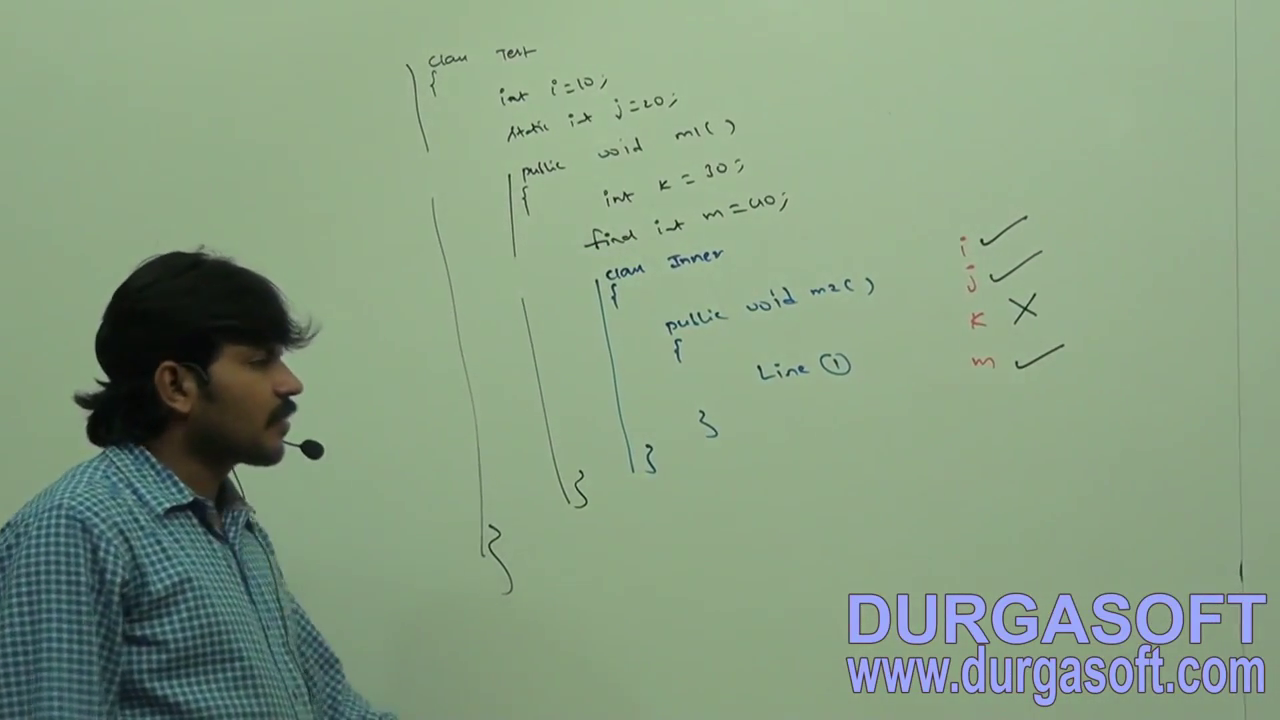 class Test
{
int i=10;
static int j=20;
public void m1( )
{
int k = 30;
final int m=40;
class Inner
{
public void m2( )
{
Line ①
}
}
}
}
i ✓
j ✓
k ✗
m ✓
DURGASOFT
www.durgasoft.com